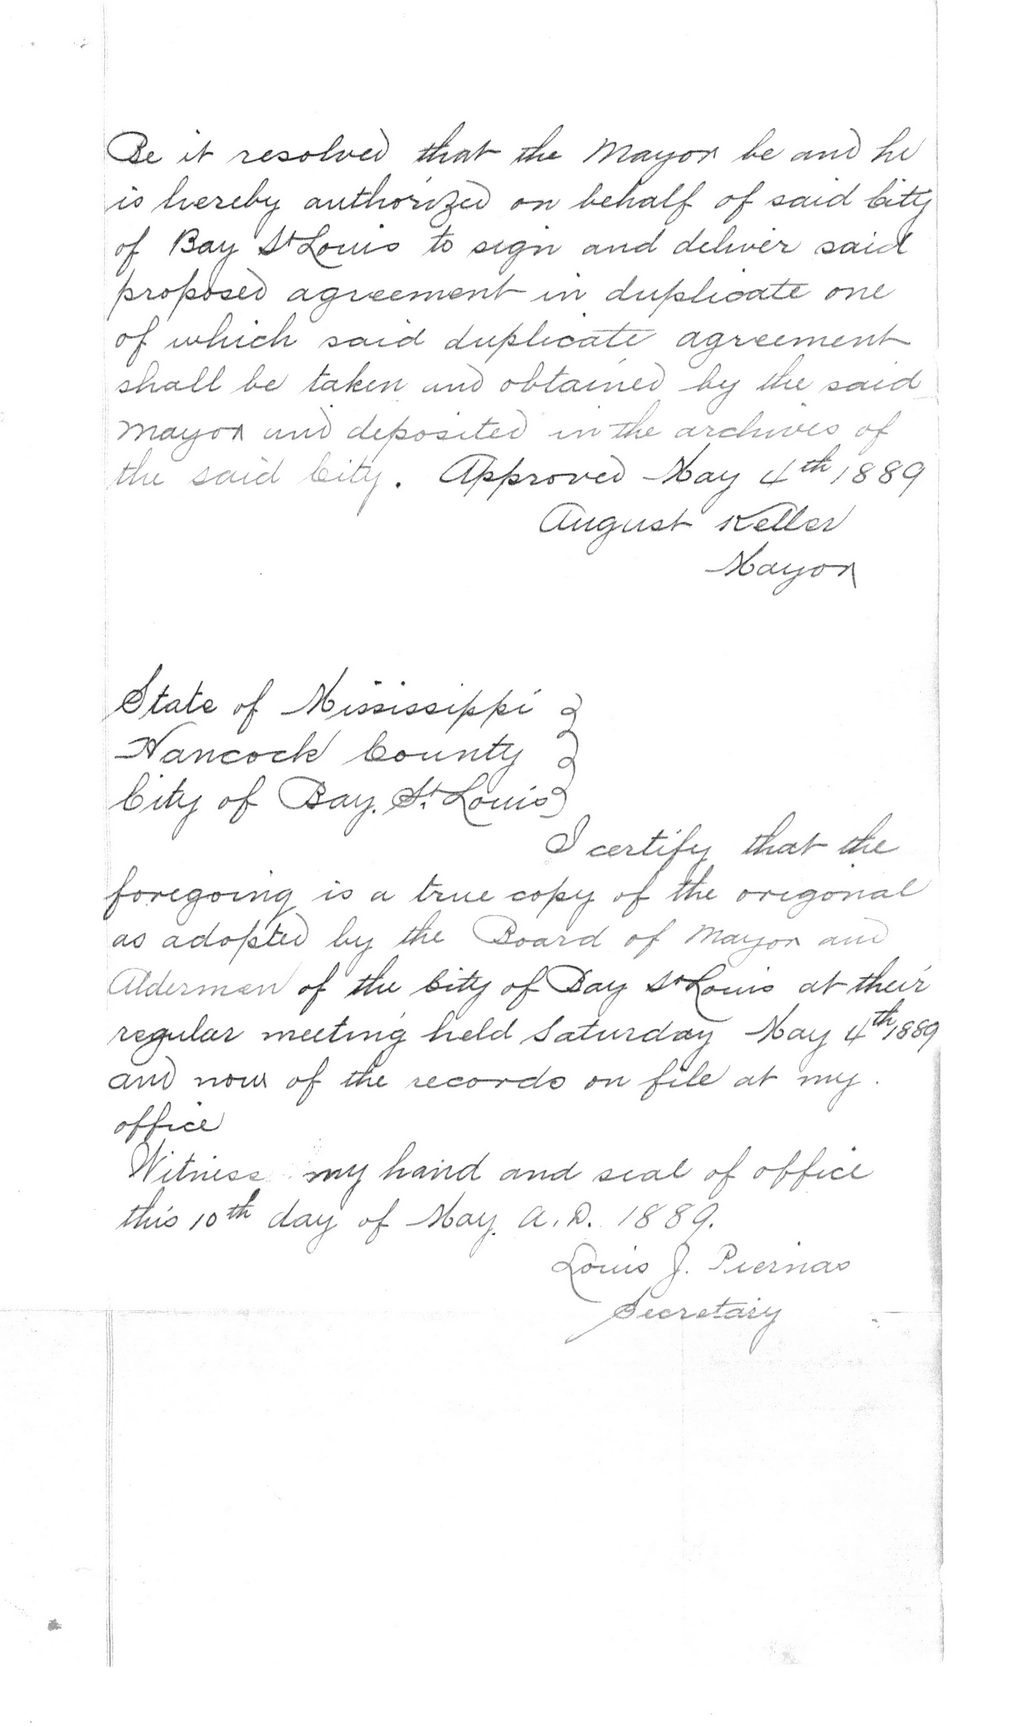 Be it resolved that the Mayor be and he
is hereby authorized on behalf of said City
of Bay St Louis to sign and deliver said
proposed agreement in duplicate one
of which said duplicate agreement
shall be taken and obtained by the said
Mayor and deposited in the archives of
the said City. Approved May 4th 1889
August Keller
Mayor
State of Mississippi
Hancock County
City of Bay. St. Louis
I certify that the
foregoing is a true copy of the origonal
as adopted by the Board of Mayor and
Aldermen of the City of Bay St Louis at their
regular meeting held Saturday May 4th 1889
and now of the records on file at my
office
Witness my hand and seal of office
this 10th day of May A.D. 1889.
Louis J. Piernas
Secretary